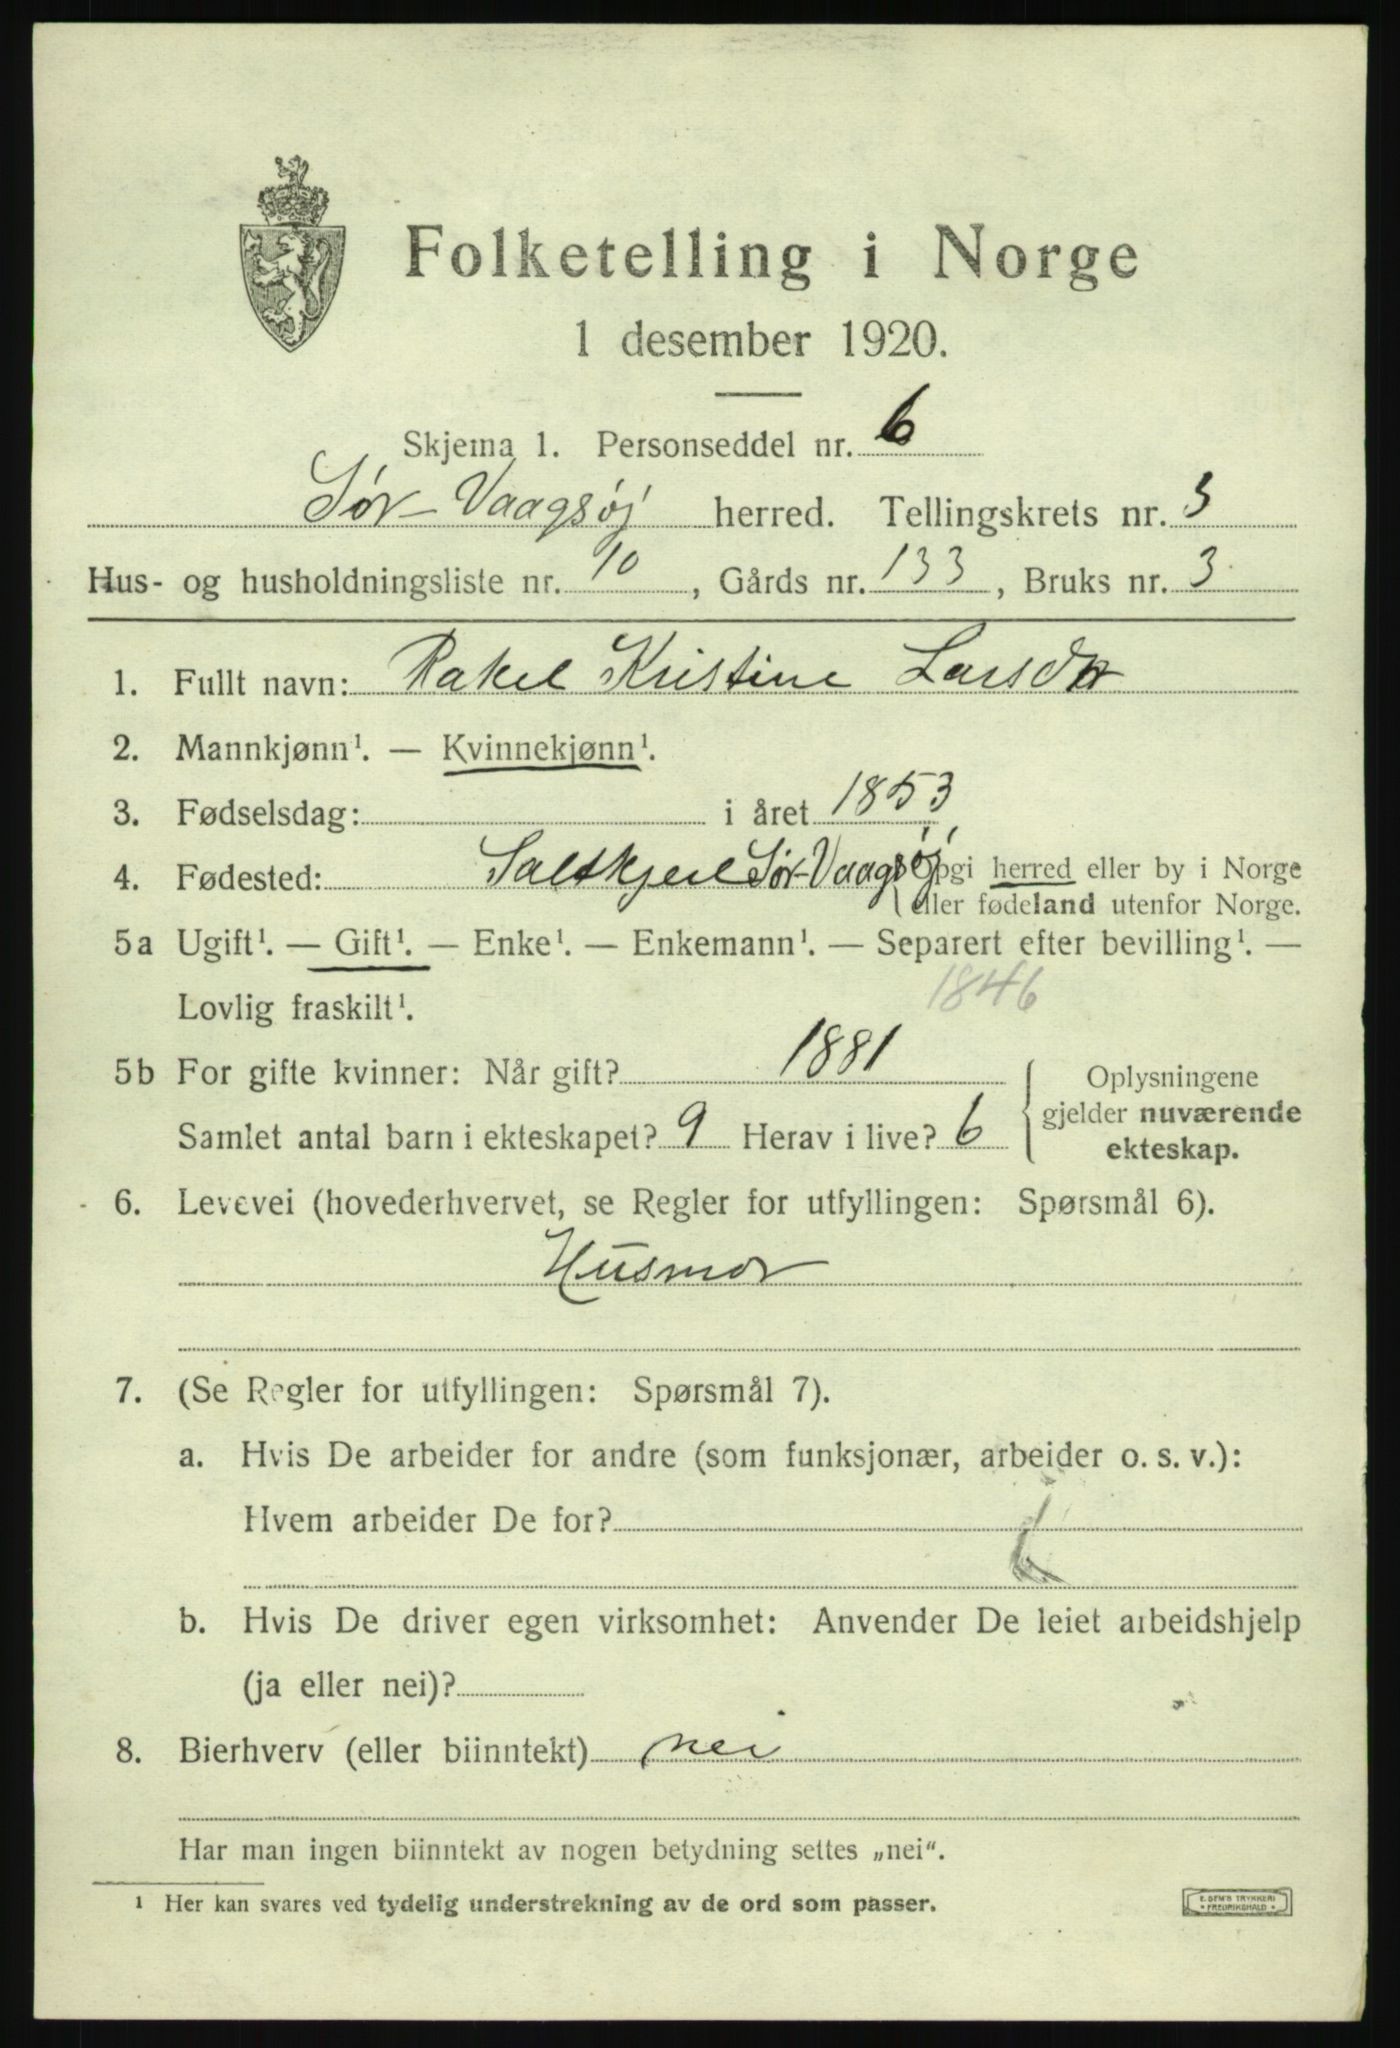 Folketelling i Norge
1 desember 1920.
Skjema 1. Personseddel nr. 6
Sør-Vaagsøj herred. Tellingskrets nr. 3
Hus- og husholdningsliste nr. 10, Gårds nr. 133, Bruks nr. 3
1. Fullt navn: Rakel Kristine Larsdr
2. Mannkjønn¹. — Kvinnekjønn¹.
3. Fødselsdag: i året 1853
4. Fødested: Saltkjel Sør-Vaagsøj Opgi herred eller by i Norge
eller fødeland utenfor Norge.
5a Ugift¹. — Gift¹. — Enke¹. — Enkemann¹. — Separert efter bevilling¹. —
Lovlig fraskilt¹. 1846
5b For gifte kvinner: Når gift? 1881
Samlet antal barn i ekteskapet? 9 Herav i live? 6
Oplysningene
gjelder nuværende
ekteskap.
6. Levevei (hovederhvervet, se Regler for utfyllingen: Spørsmål 6).
Husmor
7. (Se Regler for utfyllingen: Spørsmål 7).
a. Hvis De arbeider for andre (som funksjonær, arbeider o. s. v.):
Hvem arbeider De for?
b. Hvis De driver egen virksomhet: Anvender De leiet arbeidshjelp
(ja eller nei)?
8. Bierhverv (eller biinntekt) nei
Har man ingen biinntekt av nogen betydning settes „nei“.
¹ Her kan svares ved tydelig understrekning av de ord som passer.
E. SEM'S TRYKKERI
* FREDRIKSHALD *